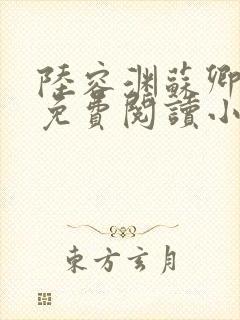 陸容渊蘇卿
免費閱讀小
東方玄月